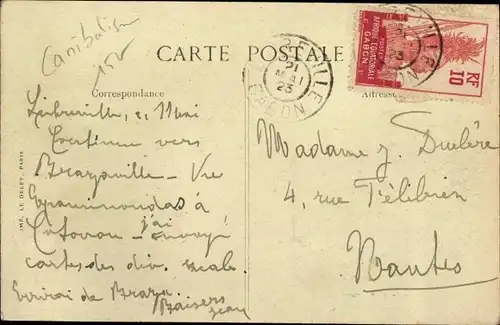 Canibalism
15-
CARTE POSTALE
Correspondance
Adresse
AFRIQUE EQUATORIALE
GABON
POSTES
RF
10
LIBREVILLE
21
MAI
23
GABON
Libreville, 21 Mai
Continue vers
Brazzaville - Vu
Epaminondas à
Cotonou - j'ai envoyé
cartes des div. escales.
Ecrirai de Brazza.
Baisers
Jean
Madame J.
4, rue Félibien
Nantes
IMP. LE DELEY, PARIS